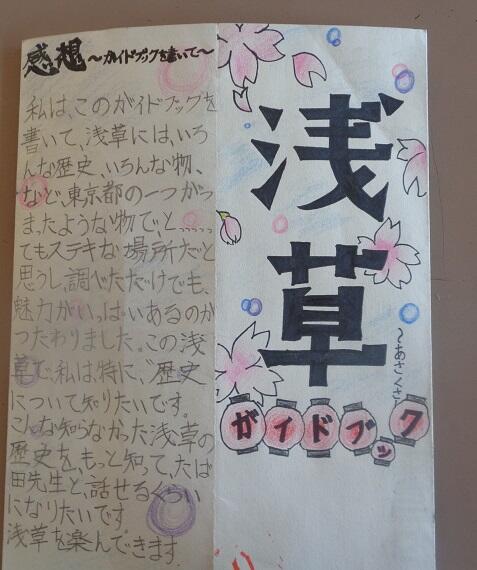 感想 〜ガイドブックを書いて〜
私は、このガイドブックを
書いて、浅草には、いろ
んな歴史、いろんな物、
など、東京都の一つがつ
まったような物で、と.....
てもステキな場所だと
思うし、調べただけでも、
魅力がいっぱいあるのが
つたわりました。この浅
草で、私は、特に、歴史
について知りたいです。
こんな知らなかった浅草の
歴史を、もっと知って、たば
田先生と、話せるくらい
になりたいです
浅草を楽んできます
浅草
〜あさくさ〜
ガイドブック